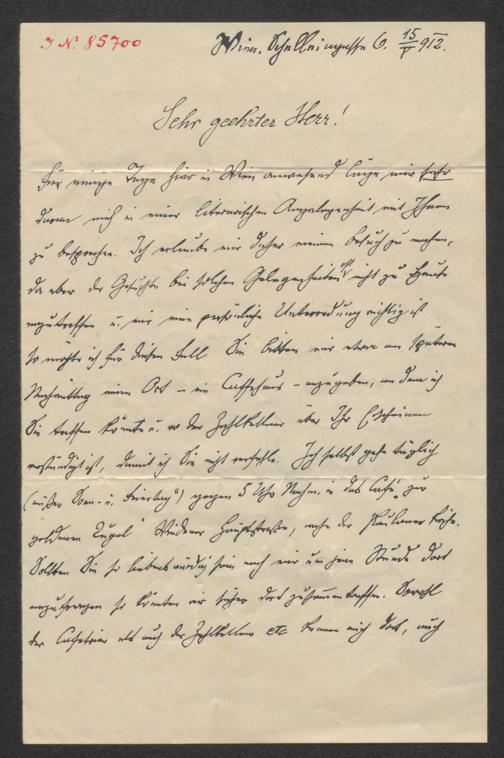 I N. 85700
Wien. Schelleingasse 6. 15/V 912.
Sehr geehrter Herr!
Für einige Tage hier in Wien anwesend läge mir sehr
daran mich in einer literarischen Angelegenheit mit Ihnen
zu besprechen. Ich erlaube mir daher meinen Besuch zu machen,
da aber der Gesuchte bei solchen Gelegenheiten oft nicht zu Hause
anzutreffen u. mir eine persönliche Unterredung wichtig ist
so möchte ich für diesen Fall Sie bitten mir etwa am späteren
Nachmittag einen Ort – ein Caffehaus – anzugeben, an dem ich
Sie treffen könnte u. wo der Zahlkellner über Ihr Erscheinen
verständigt ist, damit ich Sie nicht verfehle. Ich selbst gehe täglich
(außer Sonn- u. Feiertag) gegen 5 Uhr Nachm. in das Café "zur
goldenen Kugel" Wiedner Hauptstraße, nahe der Paulaner Kirche.
Sollten Sie so liebenswürdig sein nach mir um jene Stunde dort
anzufragen so könnten wir sicher dort zusammentreffen. Sowohl
der Cafetier als auch der Zahlkellner etc kennen mich dort, auch